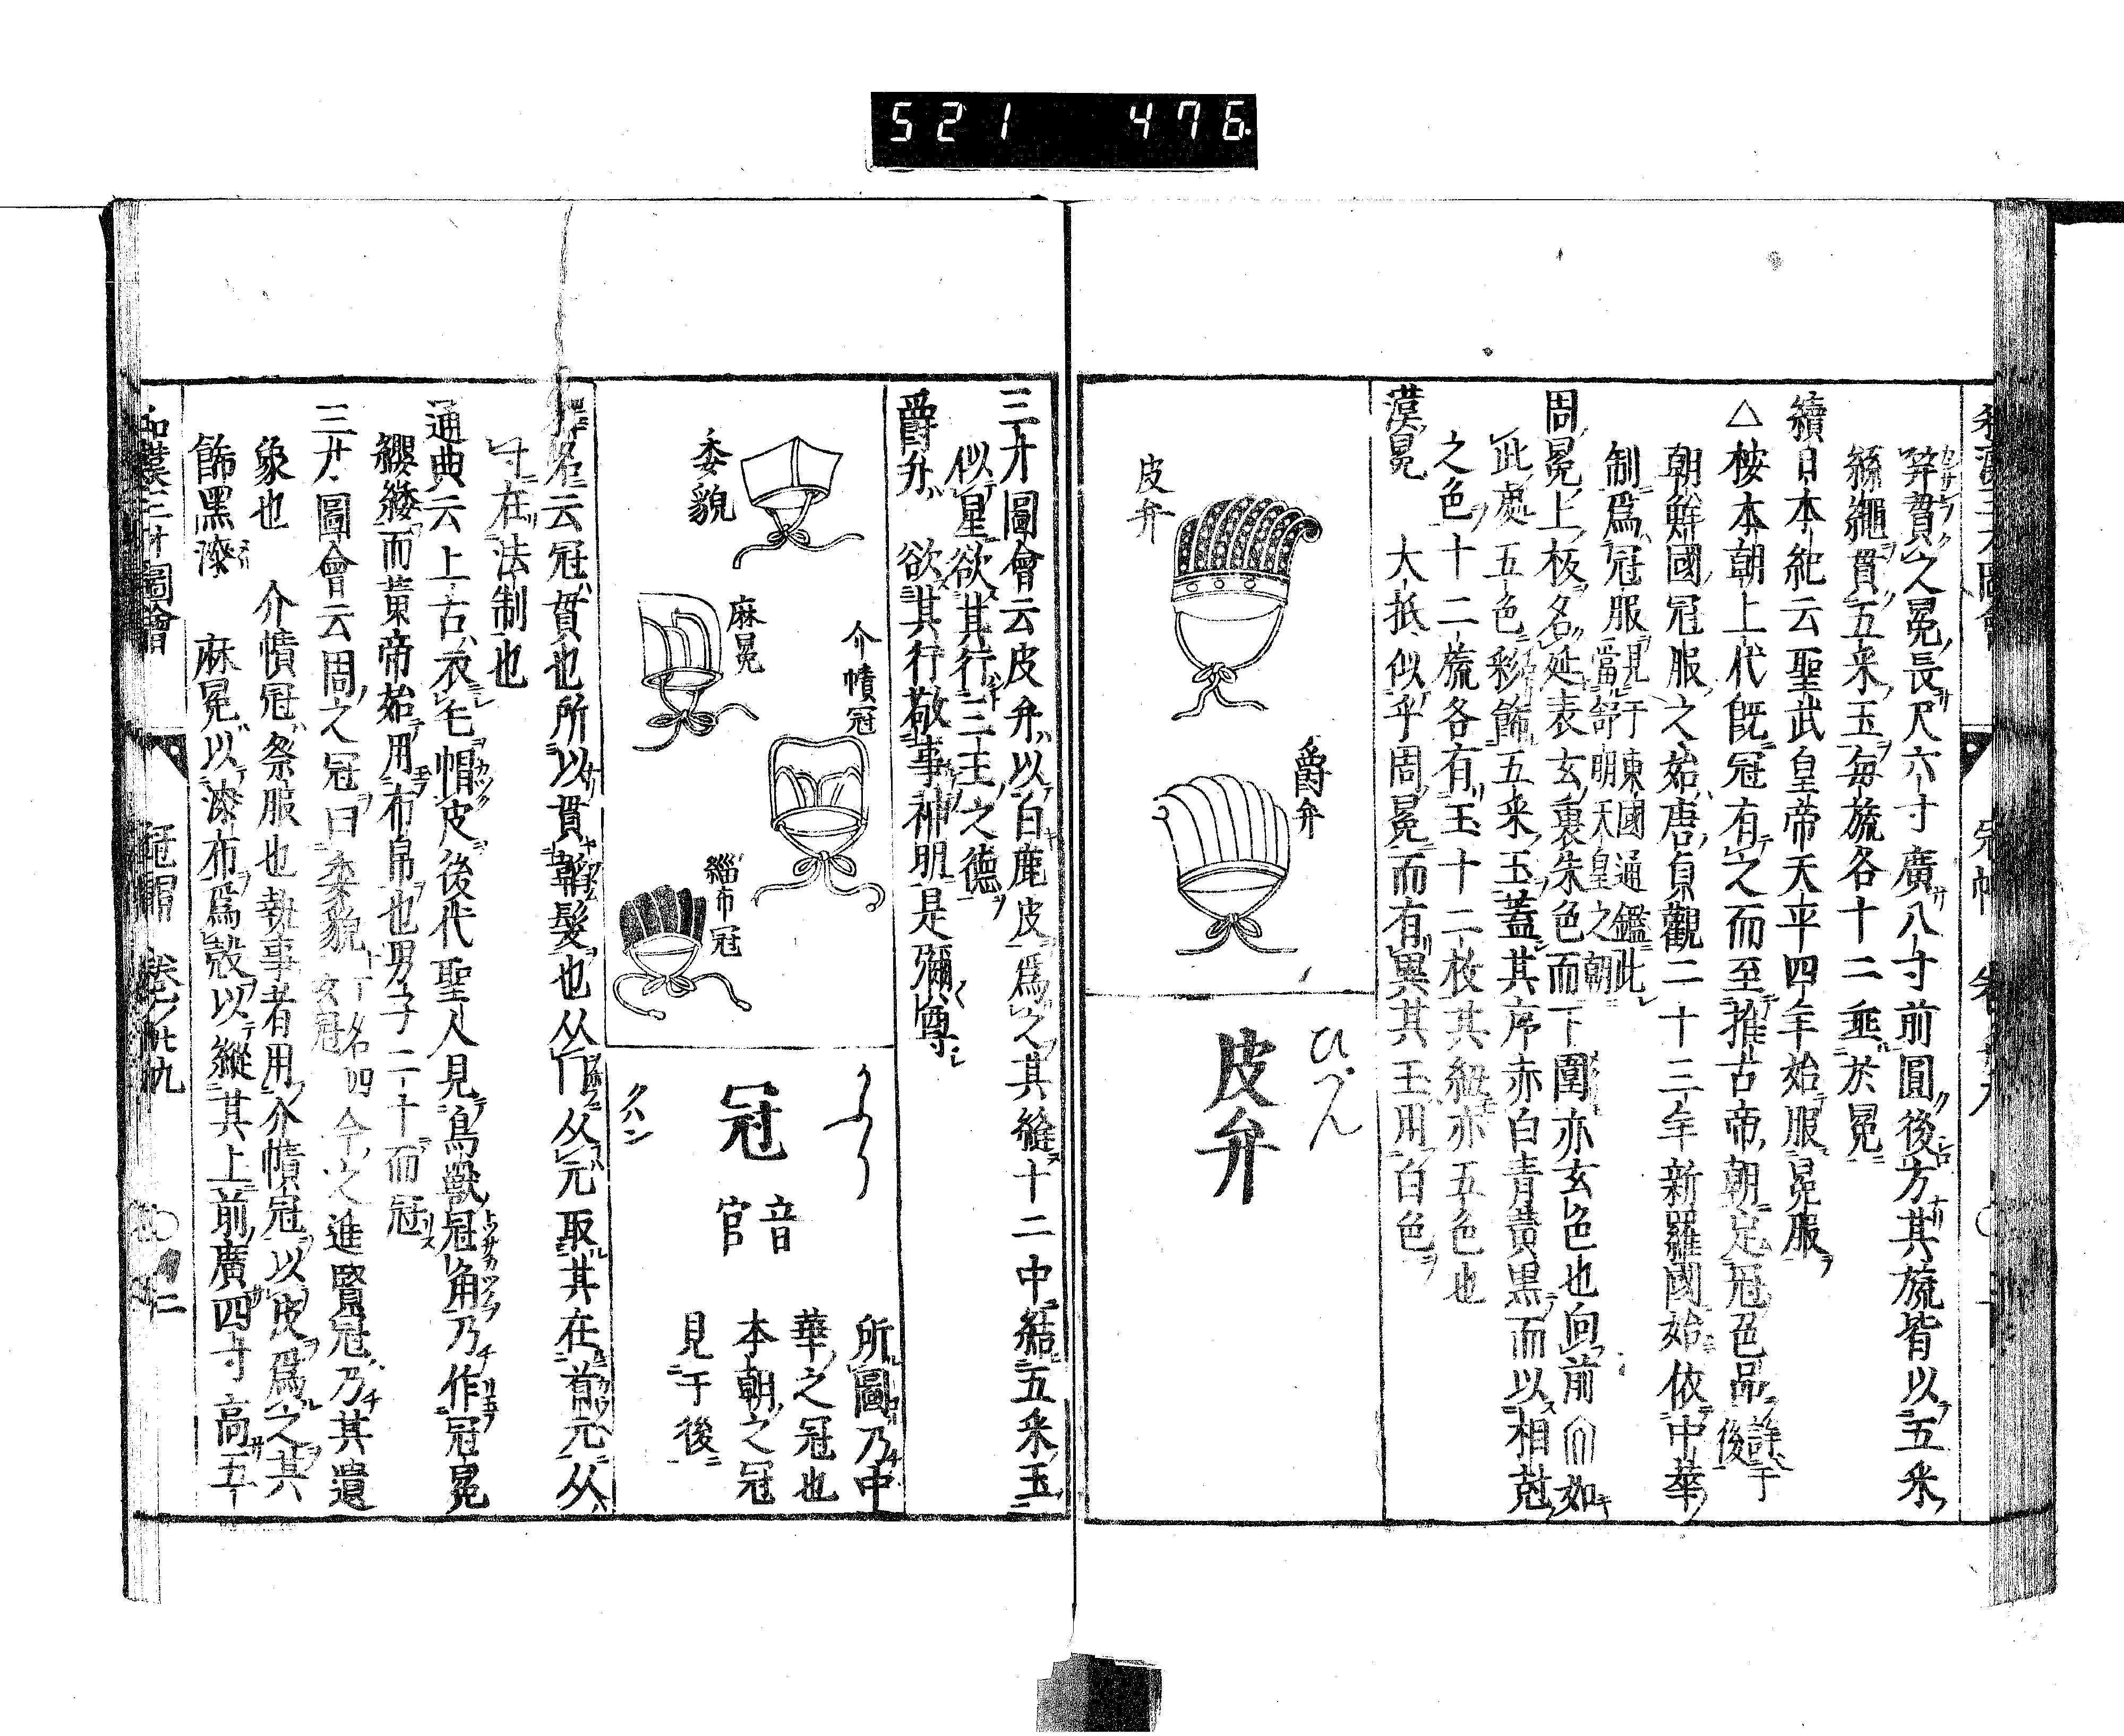 521 476
笄貫之冕長尺六寸廣八寸前圓後方其旒皆以五采
絲繩貫五采玉每旒各十二垂於冕
續日本紀云聖武皇帝天平四年始服冕服
△按本朝上代既冠有之而至推古帝朝定冠色品詳于後
朝鮮國冠服之始唐貞觀二十三年新羅國始依中華
制爲冠服見于東國通鑑此當舒明天皇之朝
周冕上板名延表玄裏朱色而下圍亦玄色也向前如
此處五色彩飾五采玉蓋其序赤白青黄黒而以相尅
之色十二旒各有玉十二枚其紐亦五色也
漢冕 大抵似乎周冕而有異其玉用白色
皮弁
爵弁
ひべん
皮弁
三才圖會云皮弁以白鹿皮爲之其縫十二中結五采玉
似星欲其行三王之德
爵弁 欲其行敬事神明是彌尊
委貌
麻冕
介幘冠
緇布冠
かふり
冠
音官
クハン
所圖乃中
華之冠也
本朝之冠
見于後
釋名云冠貫也所以貫韜髪也从冖从元取其在首元从
寸在法制也
通典云上古衣毛帽皮後代聖人見鳥獸冠角乃作冠冕
纓緌而黄帝始用布帛也男子二十而冠
三才圖會云周之冠曰委貌一名玄冠今之進賢冠乃其遺
象也 介幘冠祭服也執事者用介幘冠以皮爲之其
飾黑漆 麻冕以漆布爲殼以縱其上前廣四寸高五
和漢三才圖會 冠帽 卷之廿九